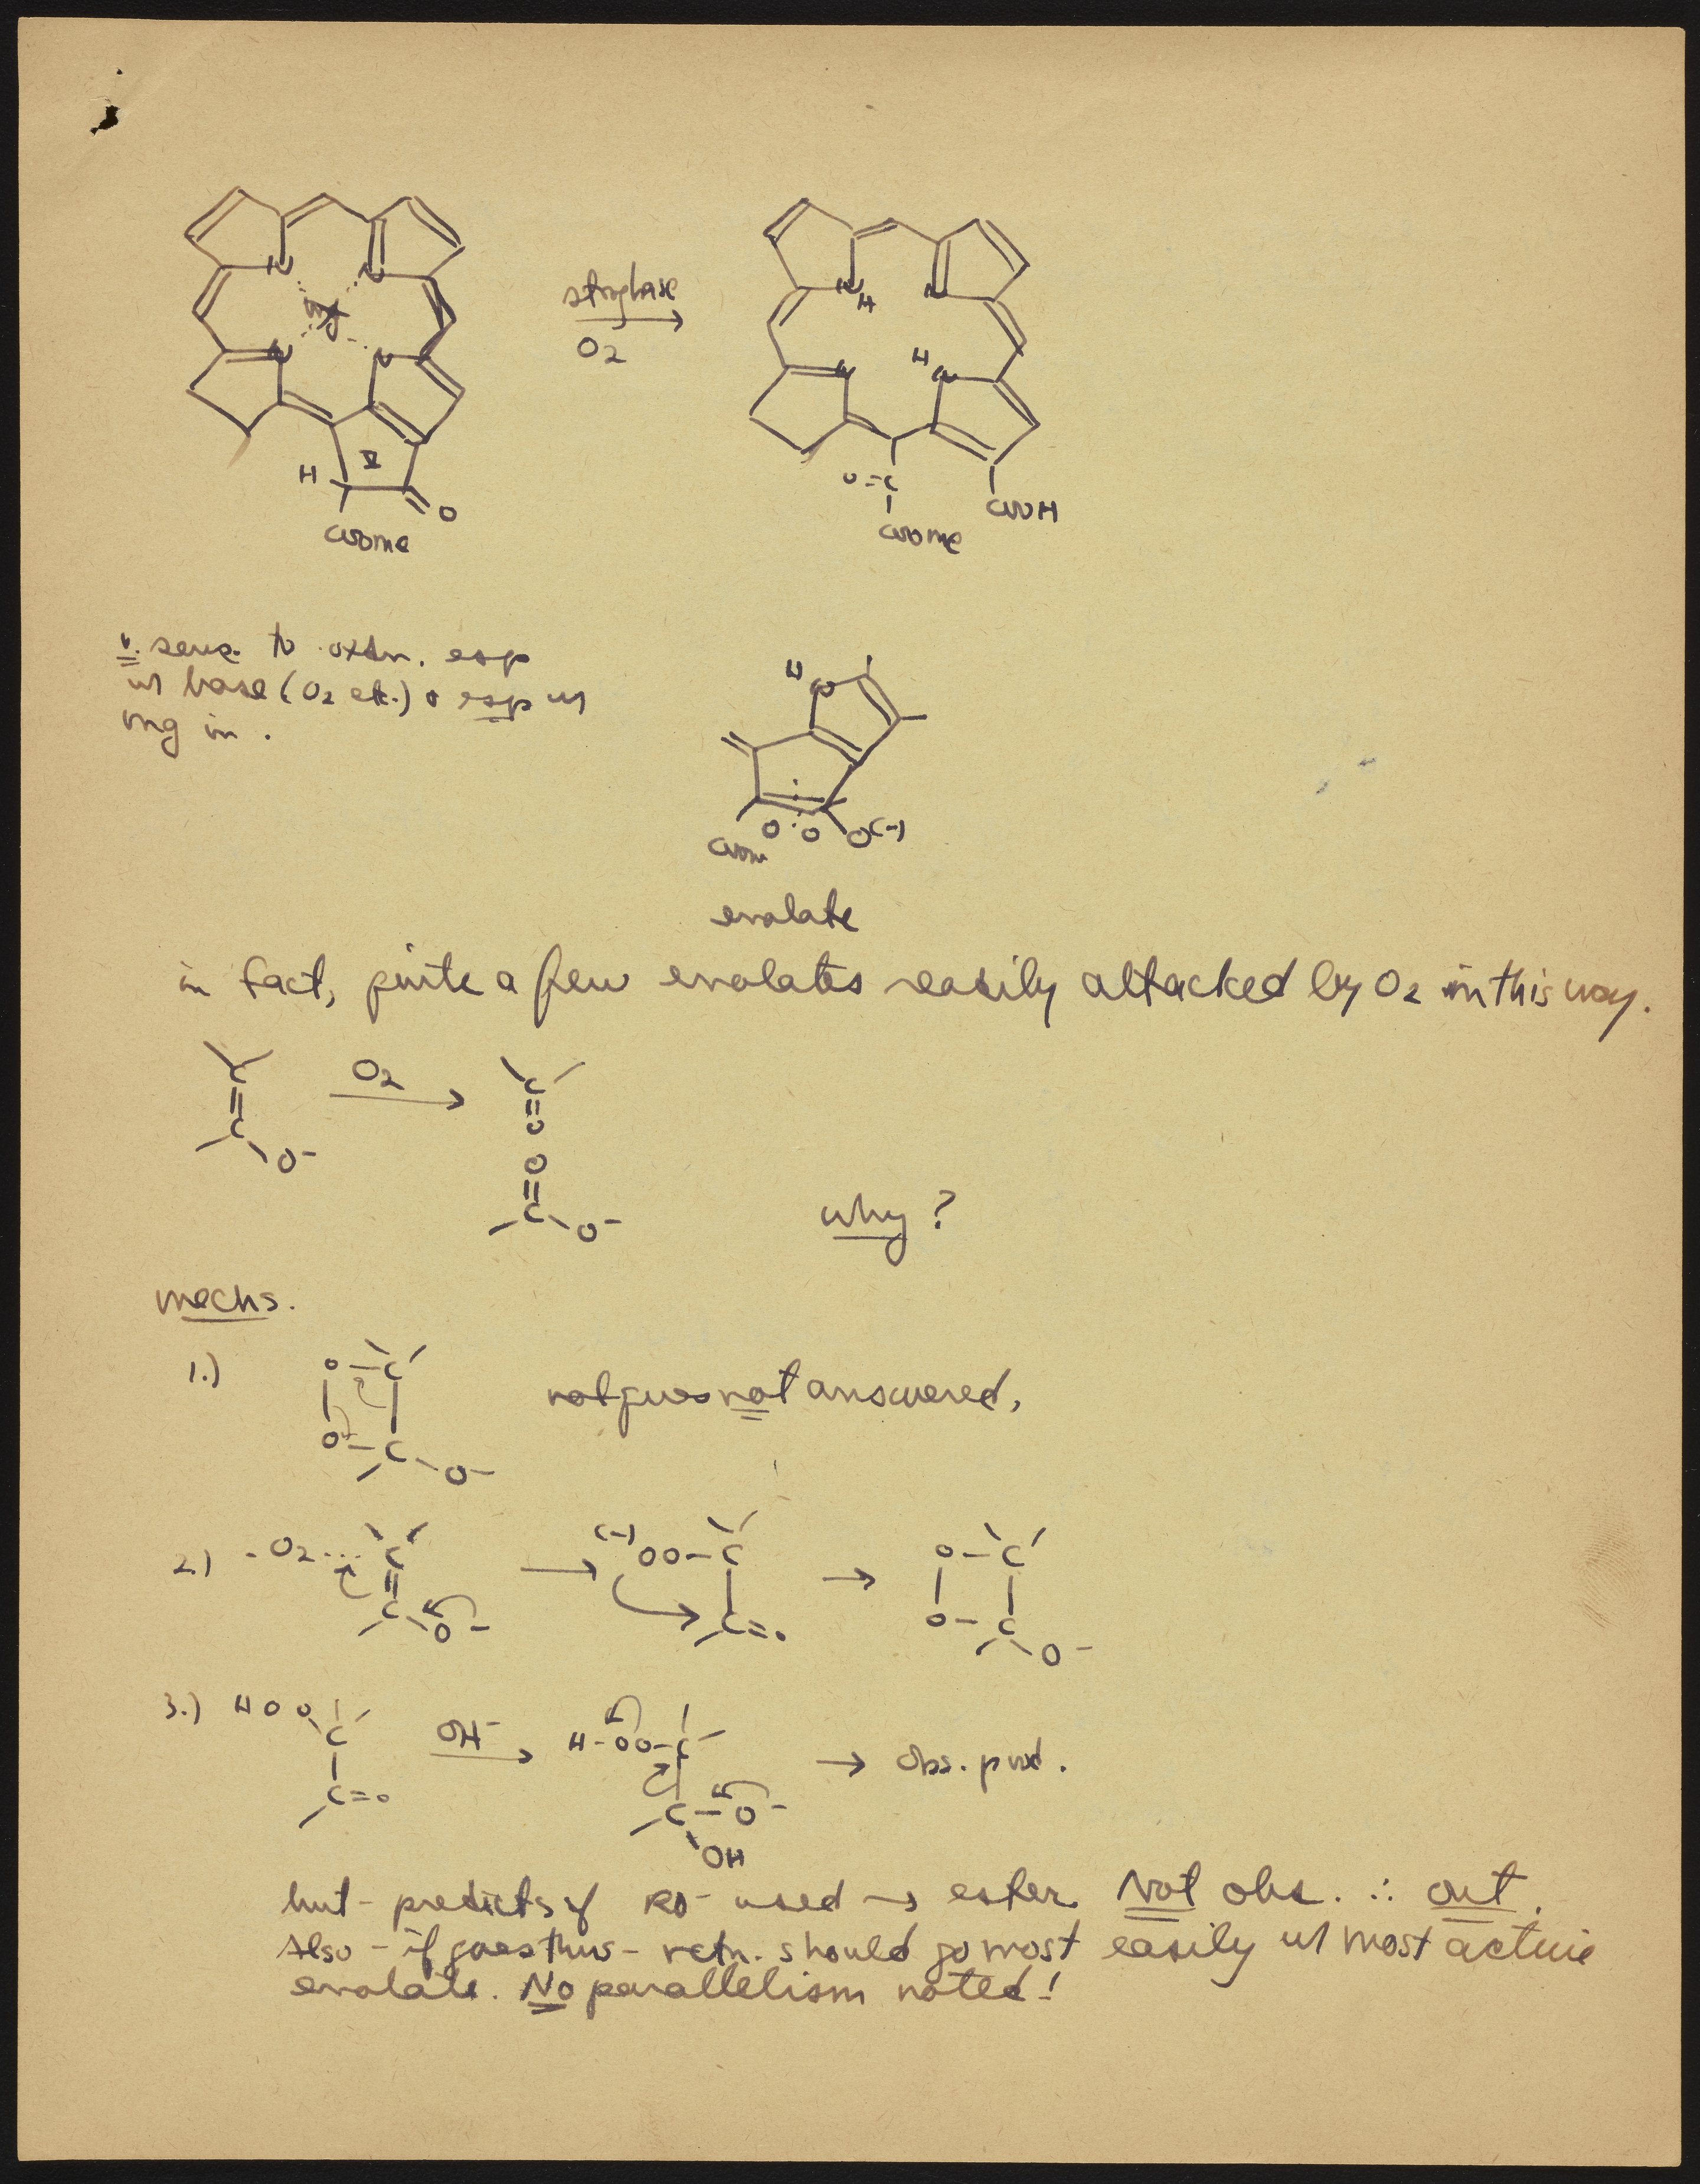 N N
Mg
N N
H V
O
COOMe
strong base
O2
N N
H
N H N
O=C
COOMe
COOH
v. sens. to oxdn. esp
w base (O2 etc.) & esp w
mg in.
H
N
COOMe O O O(-)
enolate
in fact, quite a few enolates easily attacked by O2 in this way.
C
C
O-
O2
C
O
O
C
O-
why?
mechs.
1.) O-C
O-C-O-
not answered.
2.) O2 C
C O-
(-)OO-C
C=O
O-C
O-C
O-
3.) HOO C
C=O
OH-
H-OO-C
C-O-
OH
obs. prod.
but - predicts if RO- used → ester. Not obs. ∴ out.
Also - if goes thus - rctn. should go most easily w most active
enolate. No parallelism noted!